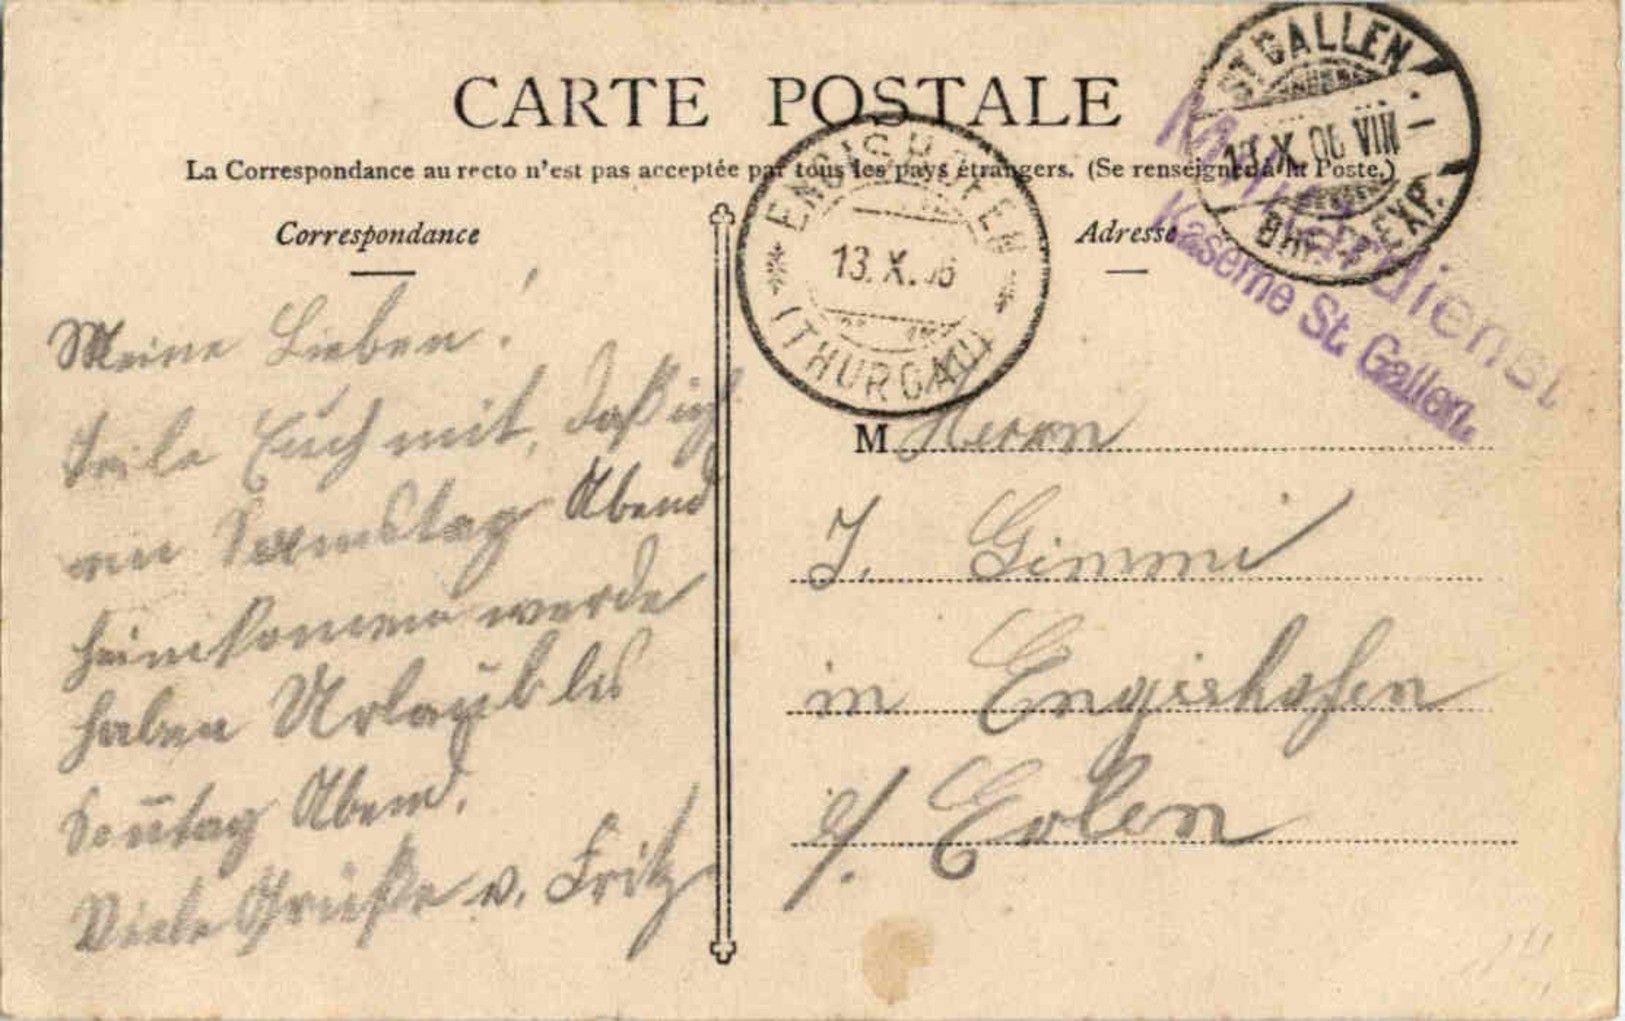 CARTE POSTALE
La Correspondance au recto n'est pas acceptée par tous les pays étrangers. (Se renseigner à la Poste.)
Correspondance
Meine Lieben!
Teile Euch mit, daß ich
am Samstag Abend
heimkommen werde
haben Urlaub bis
Sonntag Abend.
Viele Grüße v. Fritz
Adresse
M Herrn
J. Gimmi
in Engishofen
b/ Erlen
ENGISHOFEN
13. X. 06
(THURGAU)
ST. GALLEN
13. X. 06 VIII
BRF. EXP.
Militärdienst
Kaserne St. Gallen.